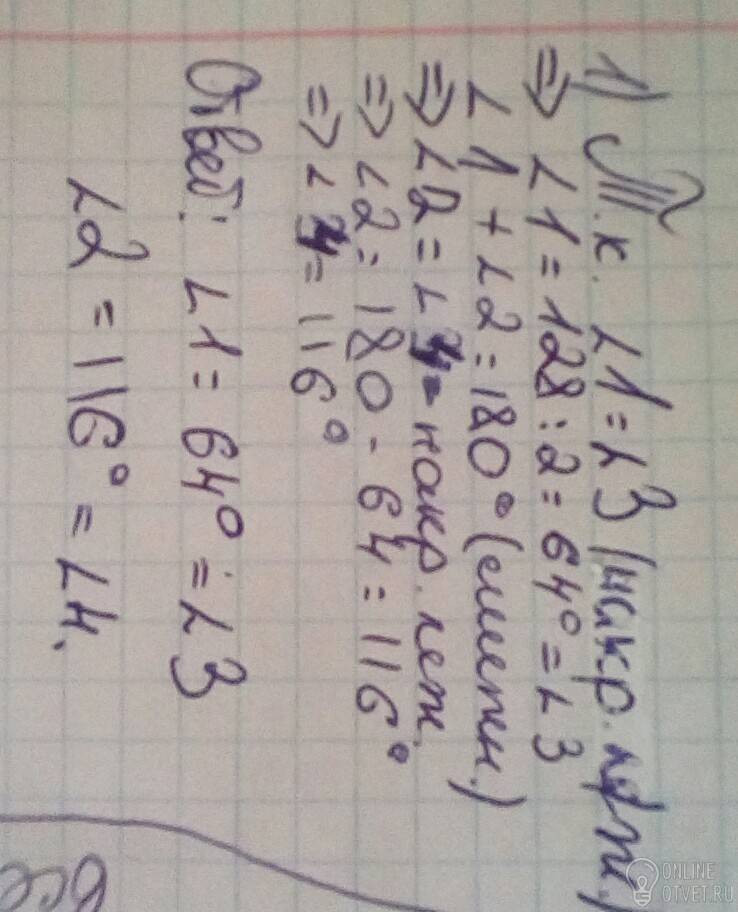 1) Т.к. ∠1 = ∠3 (накр. леж.)
⇒ ∠1 = 128 : 2 = 64° = ∠3
∠1 + ∠2 = 180° (смежн.)
⇒ ∠2 = ∠4 - накр. леж.
⇒ ∠2 = 180 - 64 = 116°
⇒ ∠4 = 116°
Ответ: ∠1 = 64° = ∠3
∠2 = 116° = ∠4.
все
ONLINE
OTVET.RU